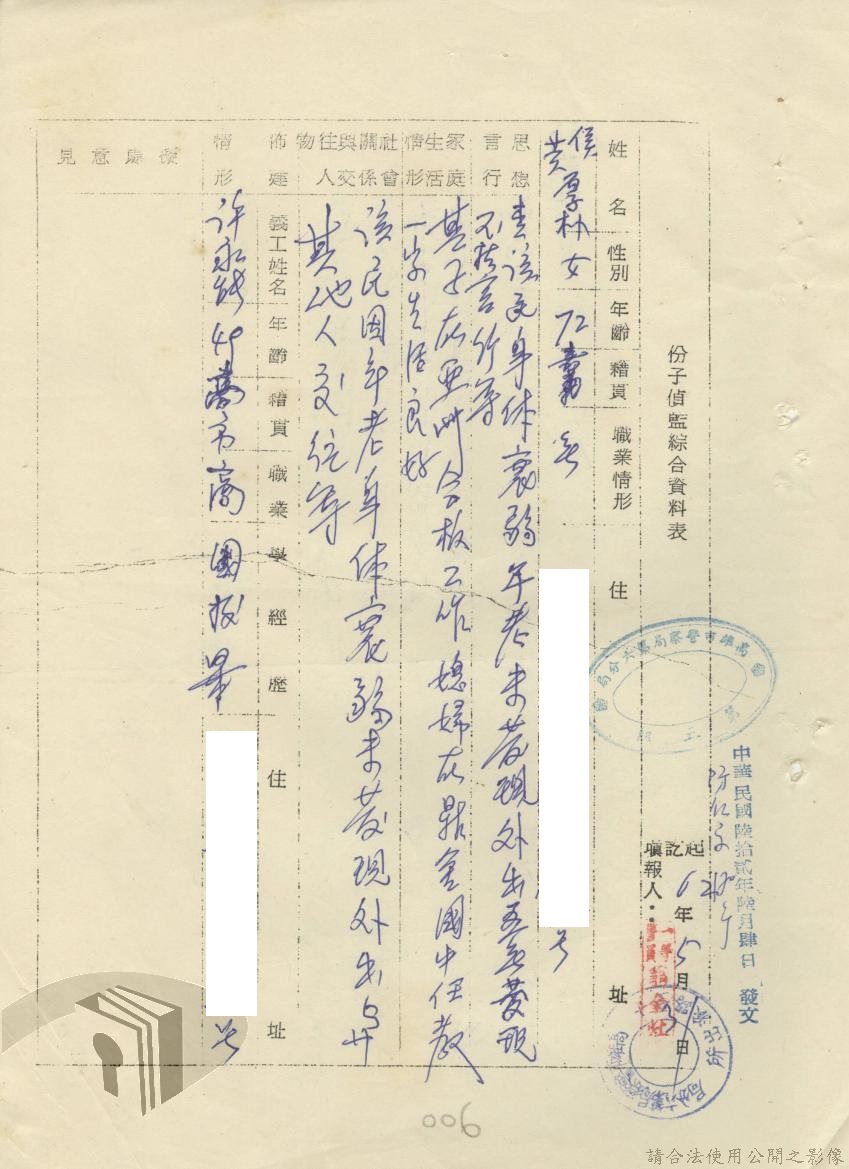 份子偵監綜合資料表
中華民國陸拾貳年陸月肆日 發文
起訖
62年5月31日
填報人：
一等警員
姓名 性別 年齡 籍貫 職業情形 住址
侯黃厚朴 女 72 無 號
思想言行
查該民身体衰弱年老未發現外出亦無發現
不法言行等
家庭生活情形
其子在亞洲合板工作媳婦在鼎金國中任教
一家生活良好
社會關係與交往人物
該民因年老身体衰弱未發現外出与
其他人交往等
佈建情形
義工姓名 年齡 籍貫 職業 學經歷 住址
許永 49 高市 商 國校畢 號
擬處意見
高雄市警察局第六分局
006
請合法使用公開之影像